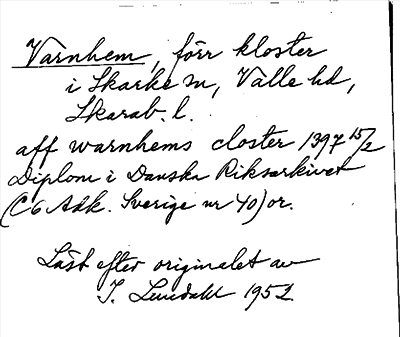 Varnhem, förr kloster
i Skarke sn, Valle hd,
Skarab. l.
aff warnhems closter 1397 15/2
Diplom i Danska Riksarkivet
(C6 Adk. Sverige nr 40) or.
Läst efter originalet av
I. Lundahl 1952